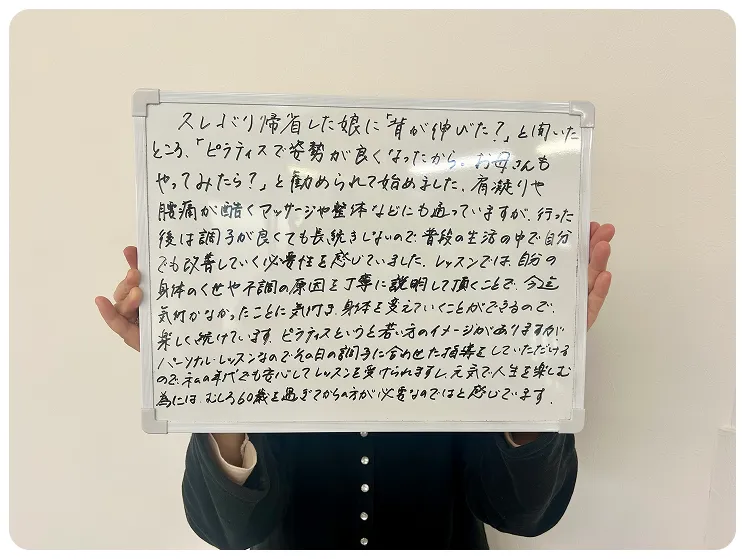 久しぶり帰省した娘に「背が伸びた?」と聞いた
ところ、「ピラティスで姿勢が良くなったから。お母さんも
やってみたら?」と勧められて始めました。肩凝りや
腰痛が酷くマッサージや整体などにも通っていますが、行った
後は調子が良くても長続きしないので、普段の生活の中で自分
でも改善していく必要性を感じていました。レッスンでは、自分の
身体のくせや不調の原因を丁寧に説明して頂くことで、今迄
気付かなかったことに気付き、身体を変えていくことができるので、
楽しく続けています。ピラティスというと若い方のイメージがありますが
パーソナルレッスンなのでその日の調子に合わせた指導をしていただける
ので、私の年代でも安心してレッスンを受けられますし、元気で人生を楽しむ
為には、むしろ60歳を過ぎてからの方が必要なのではと感じています。